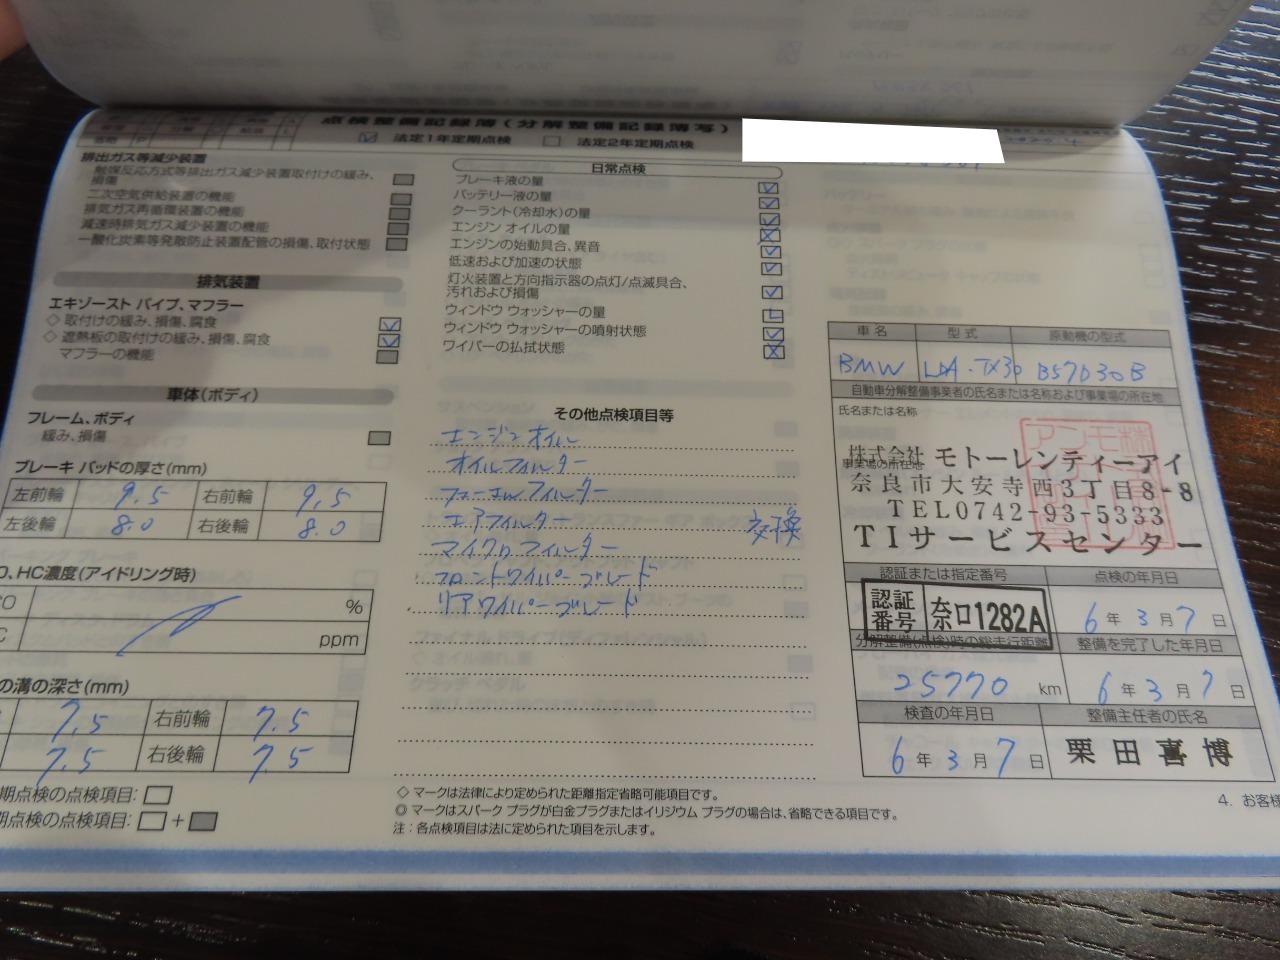 点検整備記録簿(分解整備記録簿写)
☑ 法定1年定期点検 □ 法定2年定期点検
排出ガス等減少装置
触媒反応方式等排出ガス減少装置取付けの緩み、
損傷
二次空気供給装置の機能
排気ガス再循環装置の機能
減速時排気ガス減少装置の機能
一酸化炭素等発散防止装置配管の損傷、取付状態
排気装置
エキゾースト パイプ、マフラー
◇ 取付けの緩み、損傷、腐食
◇ 遮熱板の取付けの緩み、損傷、腐食
マフラーの機能
車体(ボディ)
フレーム、ボディ
緩み、損傷
ブレーキ パッドの厚さ(mm)
左前輪 9.5 右前輪 9.5
左後輪 8.0 右後輪 8.0
、HC濃度(アイドリング時)
%
ppm
の溝の深さ(mm)
7.5 右前輪 7.5
7.5 右後輪 7.5
期点検の点検項目: □
期点検の点検項目: □ +
日常点検
ブレーキ液の量
バッテリー液の量
クーラント(冷却水)の量
エンジン オイルの量
エンジンの始動具合、異音
低速および加速の状態
灯火装置と方向指示器の点灯/点滅具合、
汚れおよび損傷
ウィンドウ ウォッシャーの量
ウィンドウ ウォッシャーの噴射状態
ワイパーの払拭状態
その他点検項目等
エンジンオイル
オイルフィルター
フューエルフィルター
エアフィルター 交換
マイクロフィルター
フロントワイパーブレード
リアワイパーブレード
◇ マークは法律により定められた距離指定省略可能項目です。
◎ マークはスパーク プラグが白金プラグまたはイリジウム プラグの場合は、省略できる項目です。
注:各点検項目は法に定められた項目を示します。
車名 型式 原動機の型式
BMW LDA-TX30 B57D30B
自動車分解整備事業者の氏名または名称および事業場の所在地
氏名または名称
株式会社 モトーレンティーアイ
事業場の所在地
奈良市大安寺西3丁目8-8
TEL0742-93-5333
TIサービスセンター
認証または指定番号 点検の年月日
認証番号 奈口1282A 6年3月7日
分解整備(点検)時の総走行距離 整備を完了した年月日
25770 km 6年3月7日
検査の年月日 整備主任者の氏名
6年3月7日 栗田喜博
4. お客様